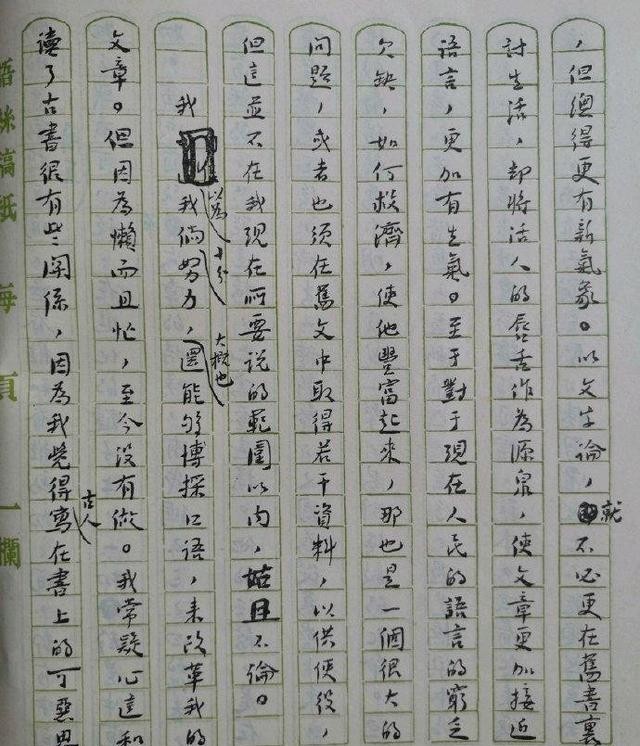 ，但總得更有新氣象。以文字論，就不必更在舊書裏
討生活，却將活人的唇舌作為源泉，使文章更加接近
語言，更加有生氣。至于對于現在人民的語言的窮乏
欠缺，如何救濟，使他豐富起來，那也是一個很大的
問題，或者也須在舊文中取得若干資料，以供使役，
但這並不在我現在所要說的範圍以内，姑且不論。
我以為我倘十分努力，大概也還能够博採口語，来改革我的
文章。但因為懶而且忙，至今没有做。我常疑心這和
讀了古書很有些関係，因為我覺得古人寫在書上的可惡思
稿紙 每頁一欄